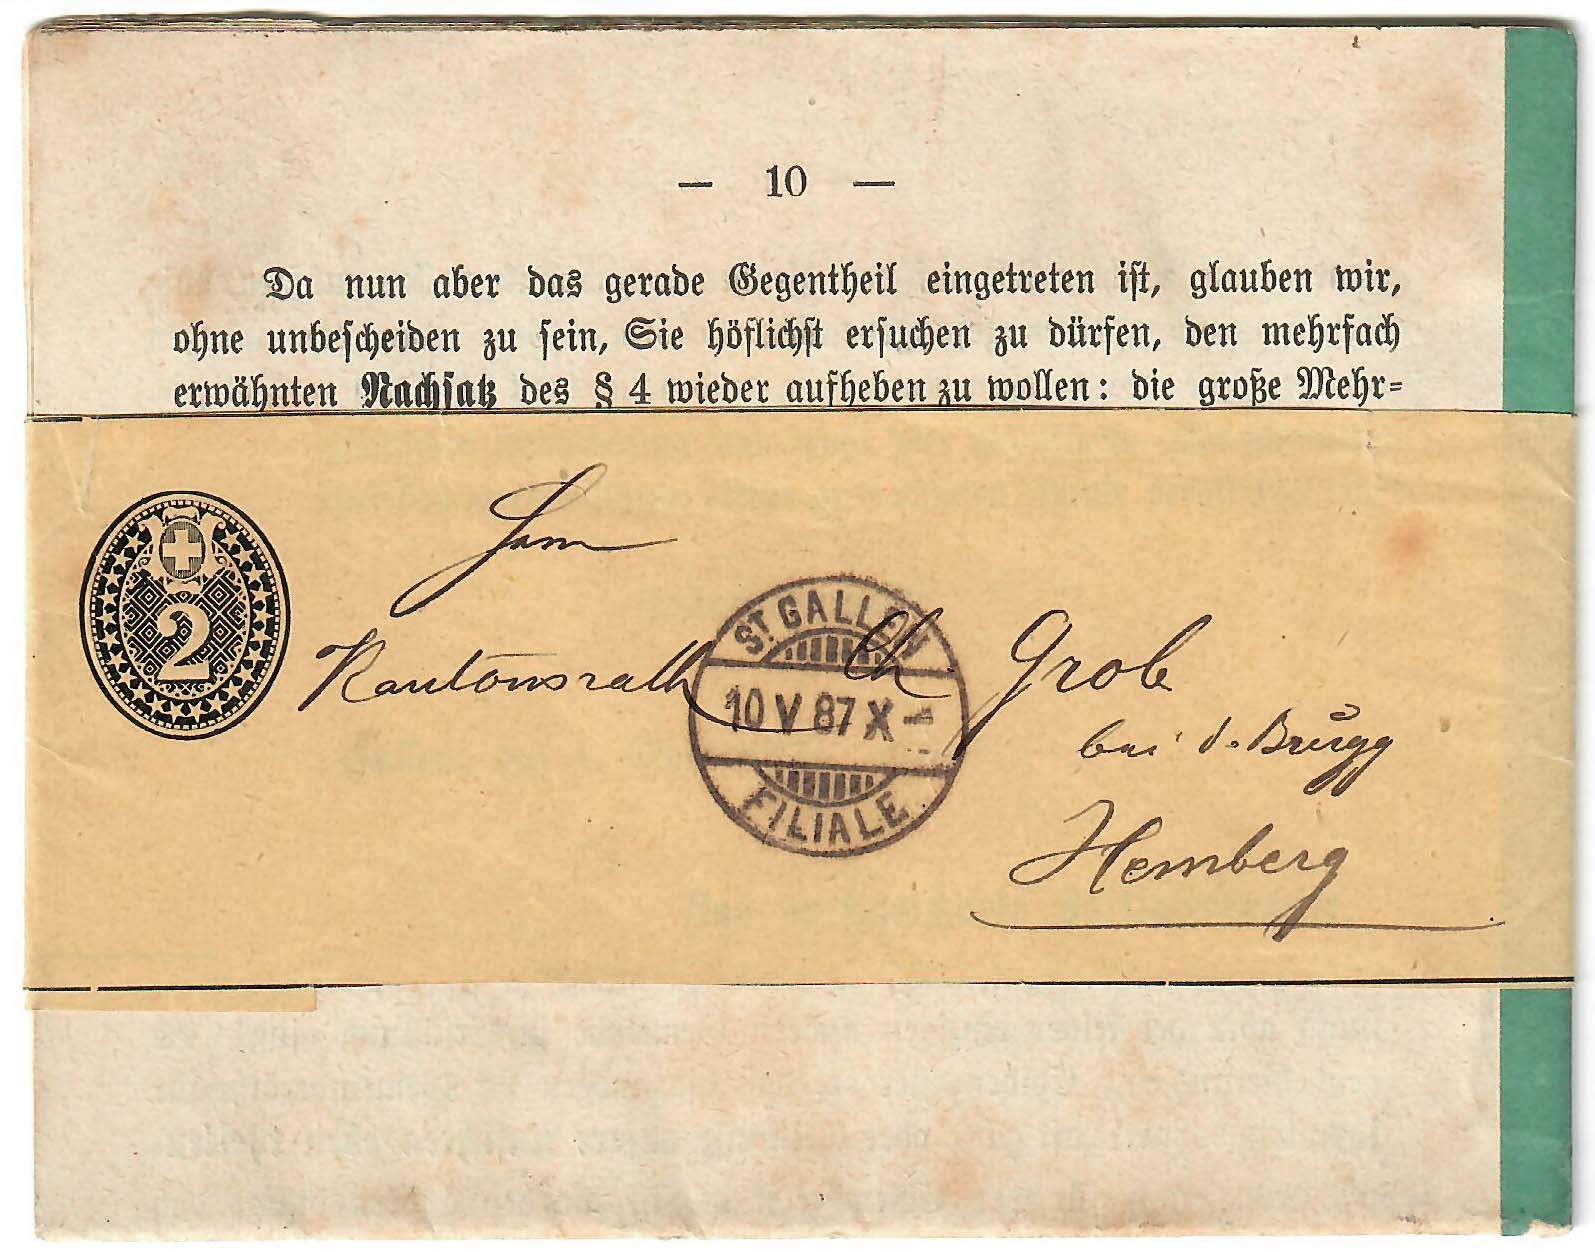 — 10 —
Da nun aber das gerade Gegentheil eingetreten ist, glauben wir,
ohne unbescheiden zu sein, Sie höflichst ersuchen zu dürfen, den mehrfach
erwähnten Nachsatz des § 4 wieder aufheben zu wollen: die große Mehr=
2
Kantonsrath Ch Grob
bei d. Brugg
Hemberg
ST. GALLEN
10 V 87 X
FILIALE